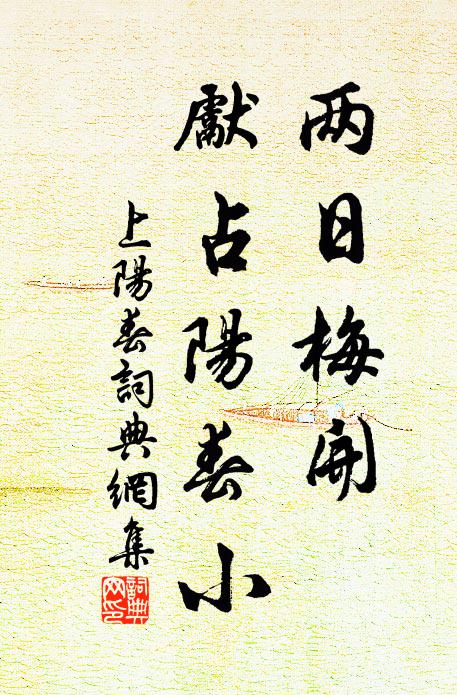 两日梅開
獻占陽春小
上陽春詞典網集
詞典
网印